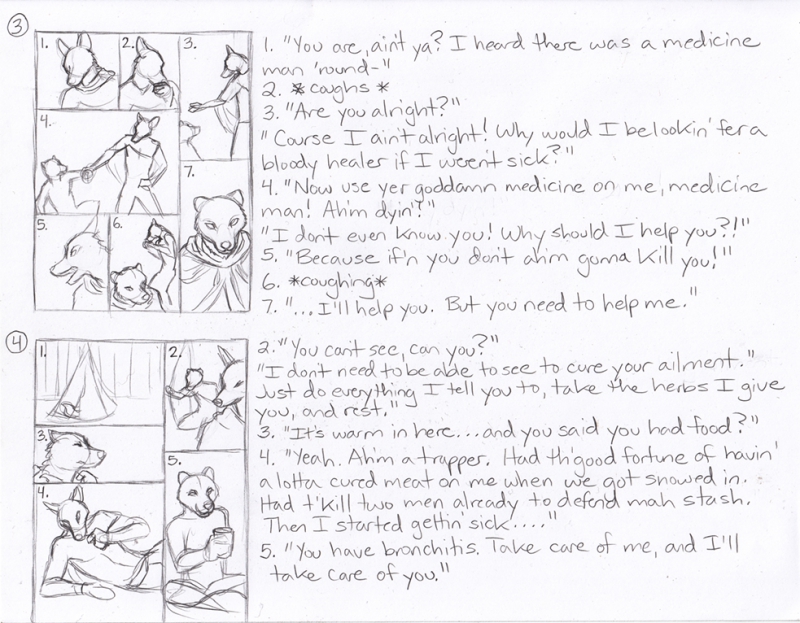 3
1. 2. 3.
4.
7.
5. 6.
1. "You are, ain't ya? I heard there was a medicine
man 'round-"
2. *coughs*
3. "Are you alright?"
"Course I ain't alright! Why would I be lookin' fer a
bloody healer if I weren't sick?"
4. "Now use yer goddamn medicine on me, medicine
man! Ah'm dyin'!"
"I don't even know you! Why should I help you?!"
5. "Because if'n you don't ah'm gonna kill you!"
6. *coughing*
7. "...I'll help you. But you need to help me."
4
1. 2.
3.
5.
4.
2. "You can't see, can you?"
"I don't need to be able to see to cure your ailment."
Just do everything I tell you to, take the herbs I give
you, and rest."
3. "It's warm in here...and you said you had food?"
4. "Yeah. Ah'm a trapper. Had th' good fortune of havin'
a lotta cured meat on me when we got snowed in.
Had t' kill two men already to defend mah stash.
Then I started gettin' sick...."
5. "You have bronchitis. Take care of me, and I'll
take care of you."